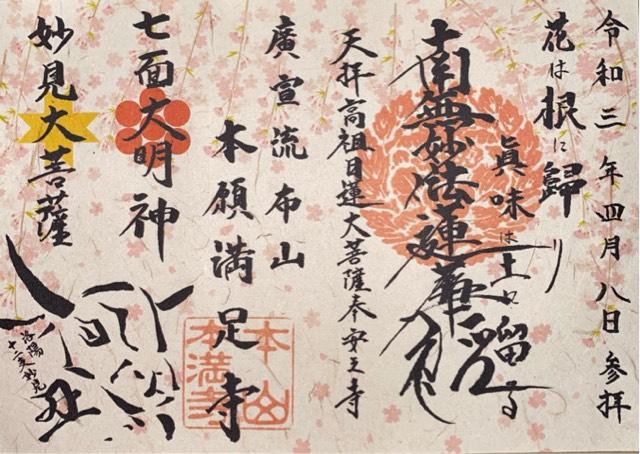 令和三年四月八日参拝
花は根に歸り
眞味は土に留る
南無妙法蓮華経
天拝高祖日蓮大菩薩奉安主寺
廣宣流布山
本願満足寺
本山
本満寺
七面大明神
妙見大菩薩
洛陽
十二支妙見